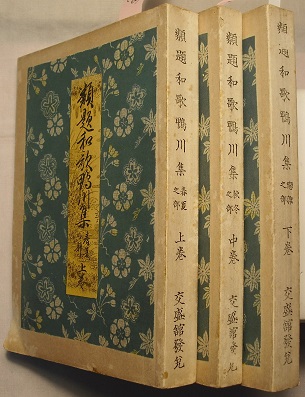 類題和歌鴨川集 春夏 上巻
類題和歌鴨川集 春夏之部 上巻 文盛館發兌
類題和歌鴨川集 秋冬之部 中巻 文盛館發兌
類題和歌鴨川集 之部 下巻 文盛館發兌